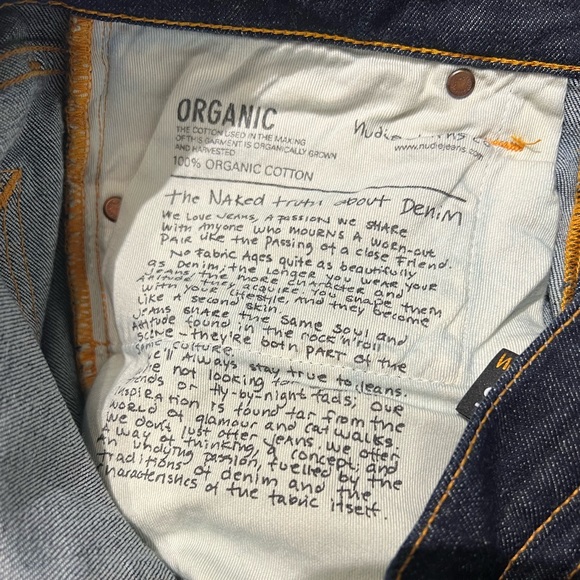 ORGANIC
THE COTTON USED IN THE MAKING
OF THIS GARMENT IS ORGANICALLY GROWN
AND HARVESTED
100% ORGANIC COTTON
Nudie
www.nudiejeans.com
the Naked truth about Denim
We Love Jeans, a passion we share
with anyone who mourns a worn-out
pair like the passing of a close friend.
No fabric ages quite as beautifully
as Denim, the longer you wear your
Jeans, the more character and
attitude they acquire. You shape them
with your lifestyle, and they become
like a second skin.
Jeans share the same soul and
attitude found in the rock'n'roll
scene - they're both part of the
same culture.
We'll always stay true to Jeans.
not looking for
or fly-by-night fads; Our
inspiration is found far from the
world of glamour and catwalks.
We don't just offer Jeans. We offer
a way of thinking, a concept, and
an undying passion, fuelled by the
traditions of denim and the
characteristics of the fabric itself.